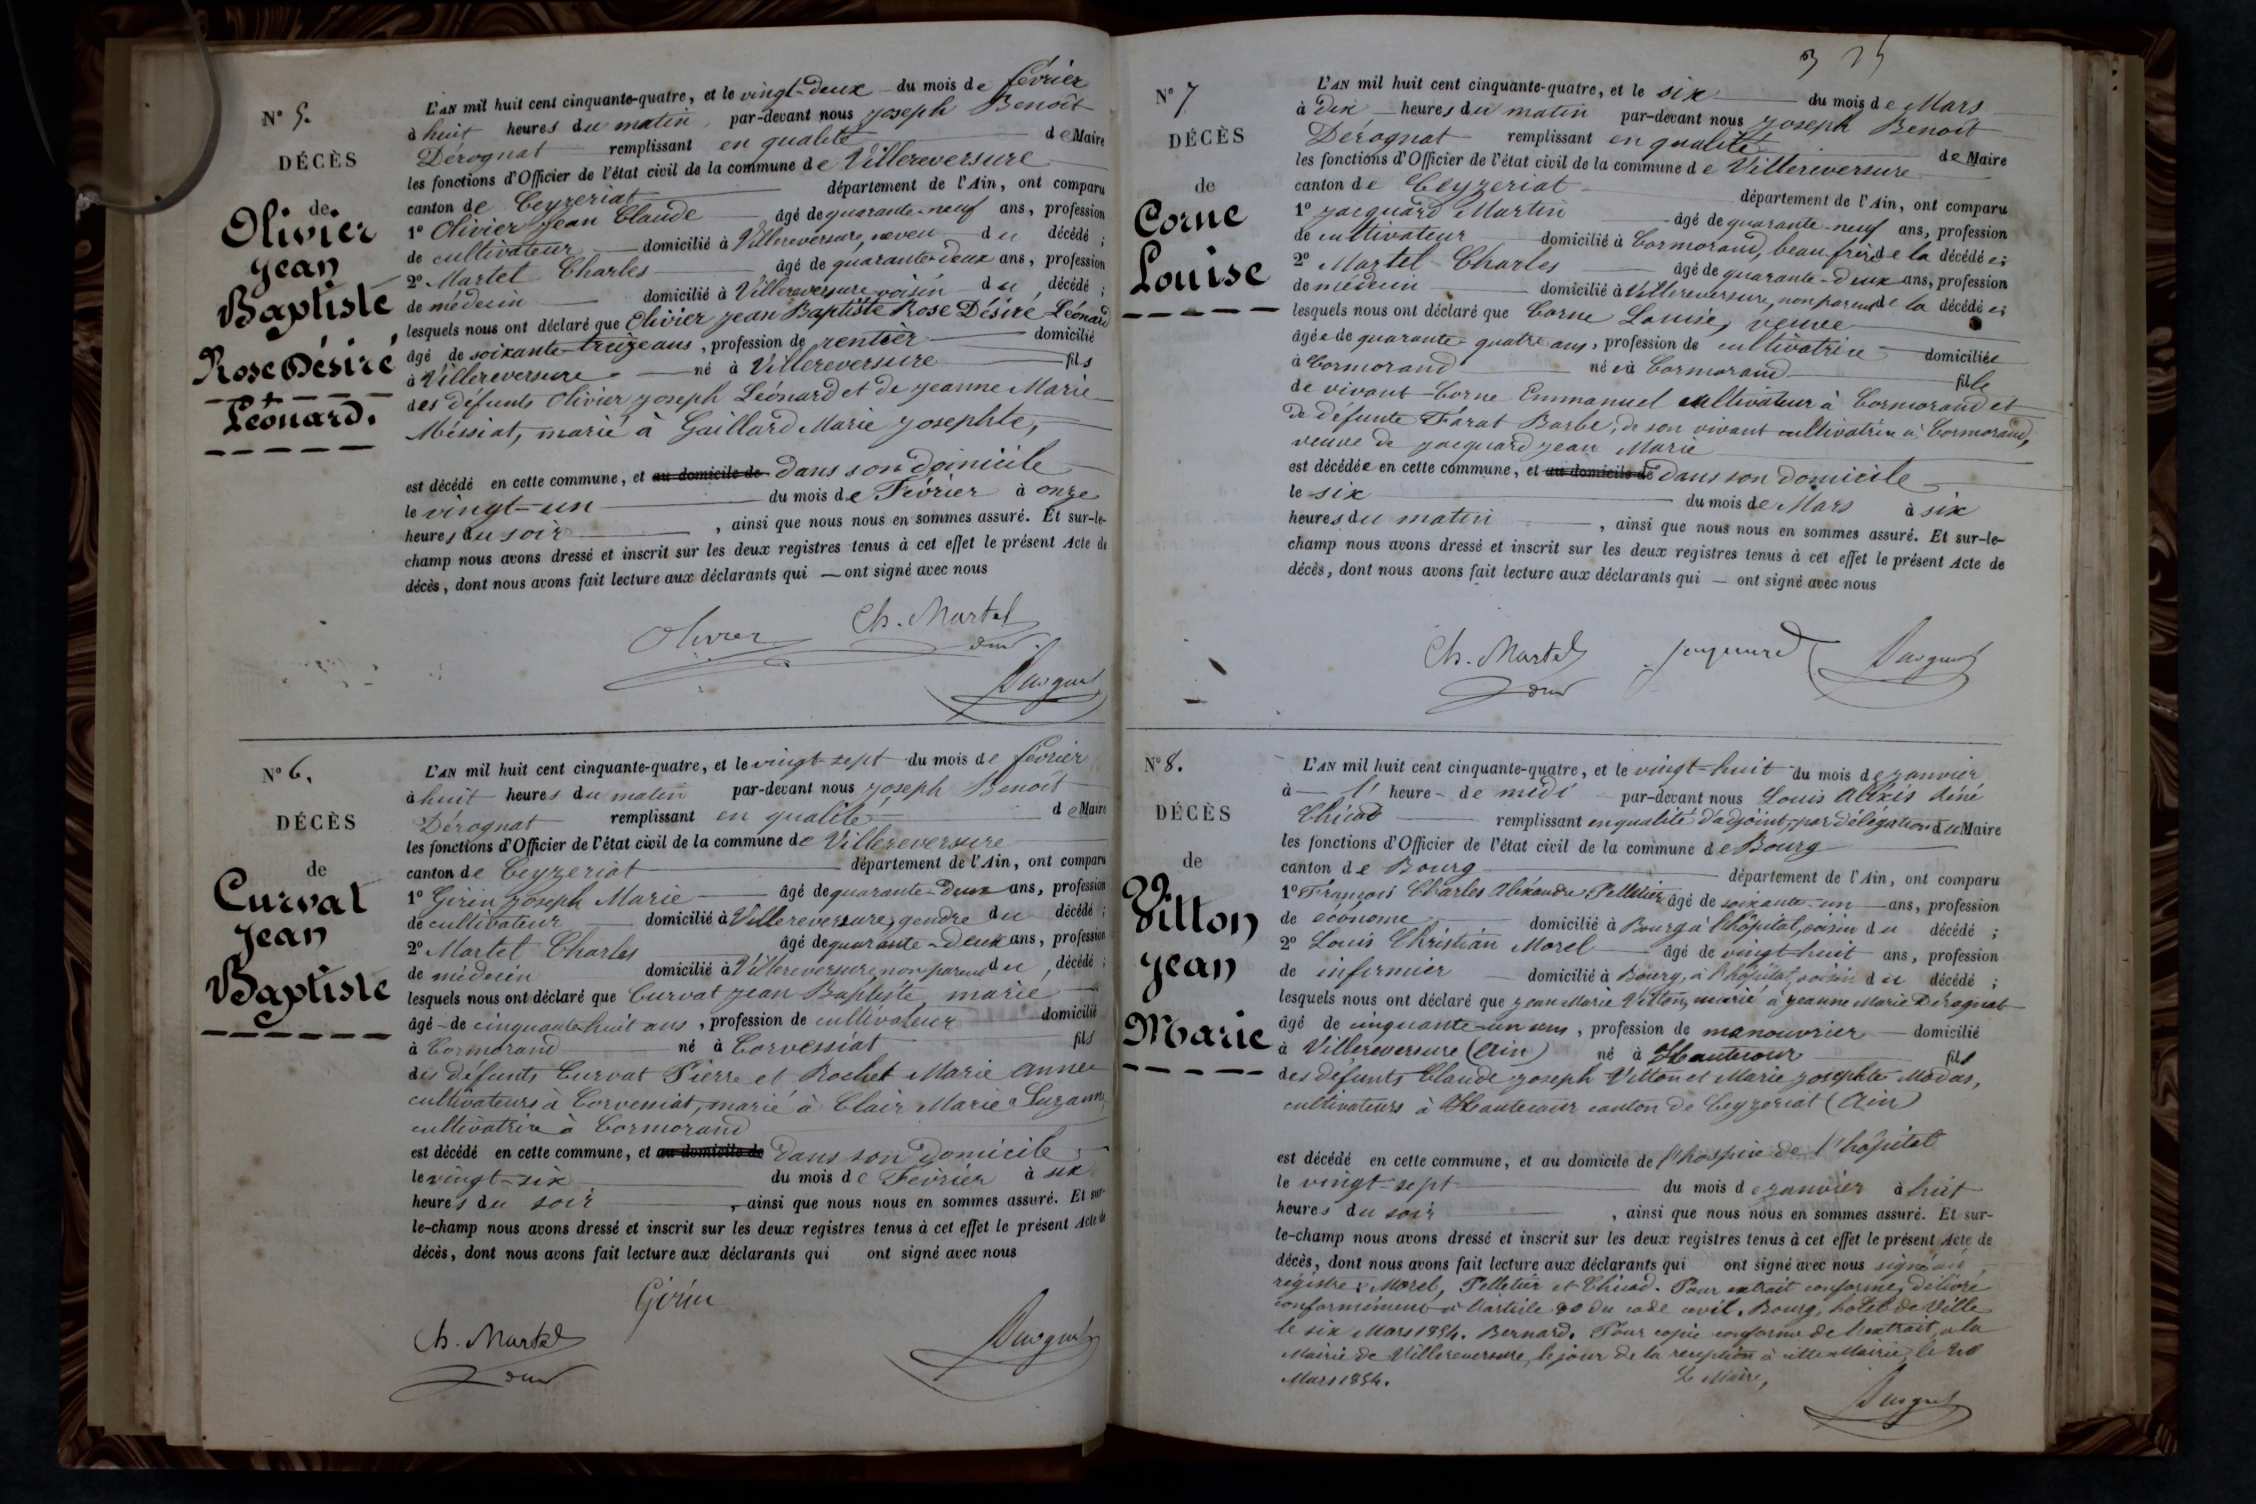 N° 5.
DÉCÈS
de
Olivier
Jean
Baptiste
Rose Désiré
Léonard.
L'AN mil huit cent cinquante-quatre, et le vingt-deux du mois de février
à huit heures du matin, par-devant nous Joseph Benoît
Dérognat remplissant en qualité de Maire
les fonctions d'Officier de l'état civil de la commune de Villereversure
canton de Ceyzeriat département de l'Ain, ont comparu
1° Olivier Jean Claude âgé de quarante-neuf ans, profession
de cultivateur domicilié à Villereversure, neveu du décédé ;
2° Martel Charles âgé de quarante-deux ans, profession
de médecin domicilié à Villereversure voisin du décédé ;
lesquels nous ont déclaré que Olivier Jean Baptiste Rose Désiré Léonard
âgé de soixante-treize ans, profession de rentier domicilié
à Villereversure né à Villereversure fils
des défunts Olivier Joseph Léonard et de Jeanne Marie
Messiat, marié à Gaillard Marie Josephte,
est décédé en cette commune, et au domicile de dans son domicile
le vingt-un du mois de Février à onze
heures du soir, ainsi que nous nous en sommes assuré. Et sur-le-
champ nous avons dressé et inscrit sur les deux registres tenus à cet effet le présent Acte de
décès, dont nous avons fait lecture aux déclarants qui — ont signé avec nous
Olivier Ch. Martel
N° 6.
DÉCÈS
de
Curvat
Jean
Baptiste
L'AN mil huit cent cinquante-quatre, et le vingt-sept du mois de février
à huit heures du matin par-devant nous Joseph Benoît
Dérognat remplissant en qualité de Maire
les fonctions d'Officier de l'état civil de la commune de Villereversure
canton de Ceyzeriat département de l'Ain, ont comparu
1° Girin Joseph Marie âgé de quarante-deux ans, profession
de cultivateur domicilié à Villereversure, gendre du décédé ;
2° Martel Charles âgé de quarante-deux ans, profession
de médecin domicilié à Villereversure, non parent du décédé ;
lesquels nous ont déclaré que Curvat Jean Baptiste, marié
âgé de cinquante huit ans, profession de cultivateur domicilié
à Cormorand né à Corveissiat fils
des défunts Curvat Pierre et Rochet Marie Anne
cultivateurs à Corveissiat, marié à Clair Marie Suzanne
cultivatrice à Cormorand
est décédé en cette commune, et au domicile de dans son domicile
le vingt-six du mois de Février à six
heures du soir, ainsi que nous nous en sommes assuré. Et sur-
le-champ nous avons dressé et inscrit sur les deux registres tenus à cet effet le présent Acte de
décès, dont nous avons fait lecture aux déclarants qui ont signé avec nous
Girin
Ch. Martel
N° 7
DÉCÈS
de
Corne
Louise
L'AN mil huit cent cinquante-quatre, et le six du mois de Mars
à dix heures du matin par-devant nous Joseph Benoît
Dérognat remplissant en qualité de Maire
les fonctions d'Officier de l'état civil de la commune de Villereversure
canton de Ceyzeriat département de l'Ain, ont comparu
1° Jacquard Martin âgé de quarante-neuf ans, profession
de cultivateur domicilié à Cormorand, beau frère de la décédée ;
2° Martel Charles âgé de quarante-deux ans, profession
de médecin domicilié à Villereversure, non parent de la décédée ;
lesquels nous ont déclaré que Corne Louise, veuve
âgée de quarante quatre ans, profession de cultivatrice domiciliée
à Cormorand née à Cormorand fille
de vivant Corne Emmanuel cultivateur à Cormorand et
de défunte Férat Barbe, de son vivant cultivatrice à Cormorand,
veuve de Jacquard Jean Marie
est décédée en cette commune, et au domicile de dans son domicile
le six du mois de Mars à six
heures du matin, ainsi que nous nous en sommes assuré. Et sur-le-
champ nous avons dressé et inscrit sur les deux registres tenus à cet effet le présent Acte de
décès, dont nous avons fait lecture aux déclarants qui — ont signé avec nous
Ch. Martel Jacquard
N° 8.
DÉCÈS
de
Vitton
Jean
Marie
L'AN mil huit cent cinquante-quatre, et le vingt-huit du mois de janvier
à l'heure de midi par-devant nous Louis Alexis Réné
Chicod remplissant en qualité d'adjoint, par délégation du Maire
les fonctions d'Officier de l'état civil de la commune de Bourg
canton de Bourg département de l'Ain, ont comparu
1° François Charles Alexandre Pelletier âgé de soixante-un ans, profession
de économe domicilié à Bourg à l'hôpital, voisin du décédé ;
2° Louis Christian Morel âgé de vingt-huit ans, profession
de infirmier domicilié à Bourg, à l'hôpital, voisin du décédé ;
lesquels nous ont déclaré que Jean Marie Vitton, marié à Jeanne Marie Dérognat
âgé de cinquante-un ans, profession de manouvrier domicilié
à Villereversure (Ain) né à Hautecour fils
des défunts Claude Joseph Vitton et Marie Josephte Modas,
cultivateurs à Hautecour canton de Ceyzeriat (Ain)
est décédé en cette commune, et au domicile de l'hospice de l'hôpital
le vingt-sept du mois de janvier à huit
heures du soir, ainsi que nous nous en sommes assuré. Et sur-
le-champ nous avons dressé et inscrit sur les deux registres tenus à cet effet le présent Acte de
décès, dont nous avons fait lecture aux déclarants qui ont signé avec nous signé au
registre : Morel, Pelletier et Chicod. Pour extrait conforme, délivré
conformément à l'article 80 du code civil. Bourg, hôtel de Ville
le six Mars 1854. Bernard. Pour copie conforme de l'extrait, à la
Mairie de Villereversure, le jour de la réception à cette Mairie, le
Mars 1854. Le Maire,